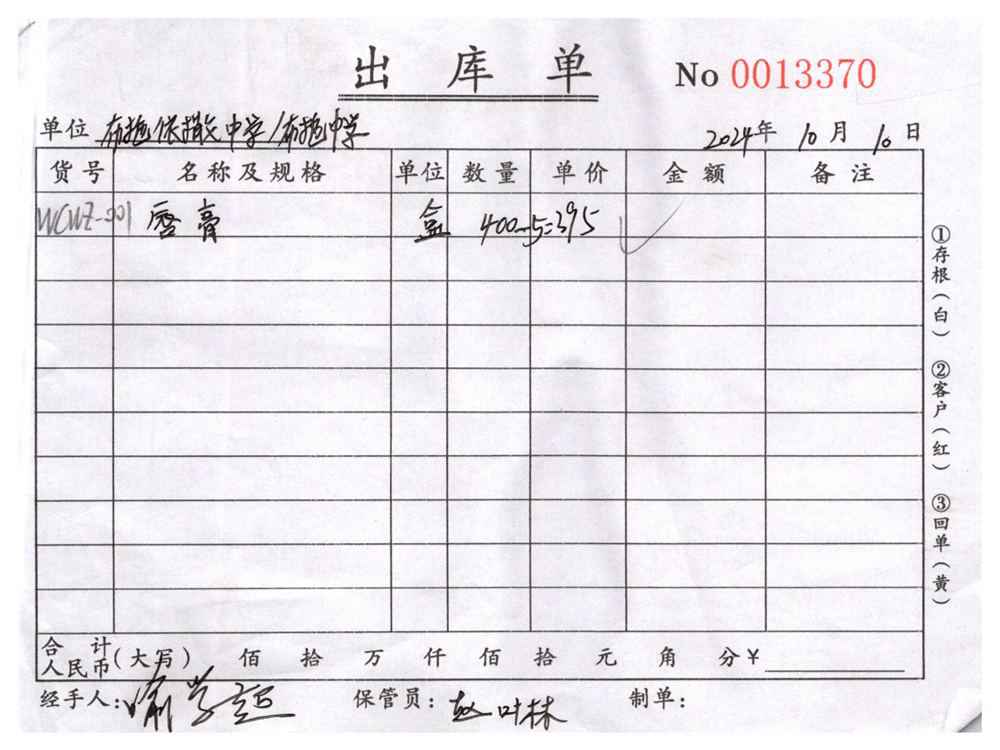 出库单 No 0013370
单位 布拖依撒中学/布拖中学 2024年 10月 10日
货号 名称及规格 单位 数量 单价 金额 备注
WCWZ-001 唇膏 盒 400-5=395 ✓
①存根(白) ②客户(红) ③回单(黄)
合计人民币(大写) 佰 拾 万 仟 佰 拾 元 角 分 ¥
经手人: 保管员:赵叶林 制单: